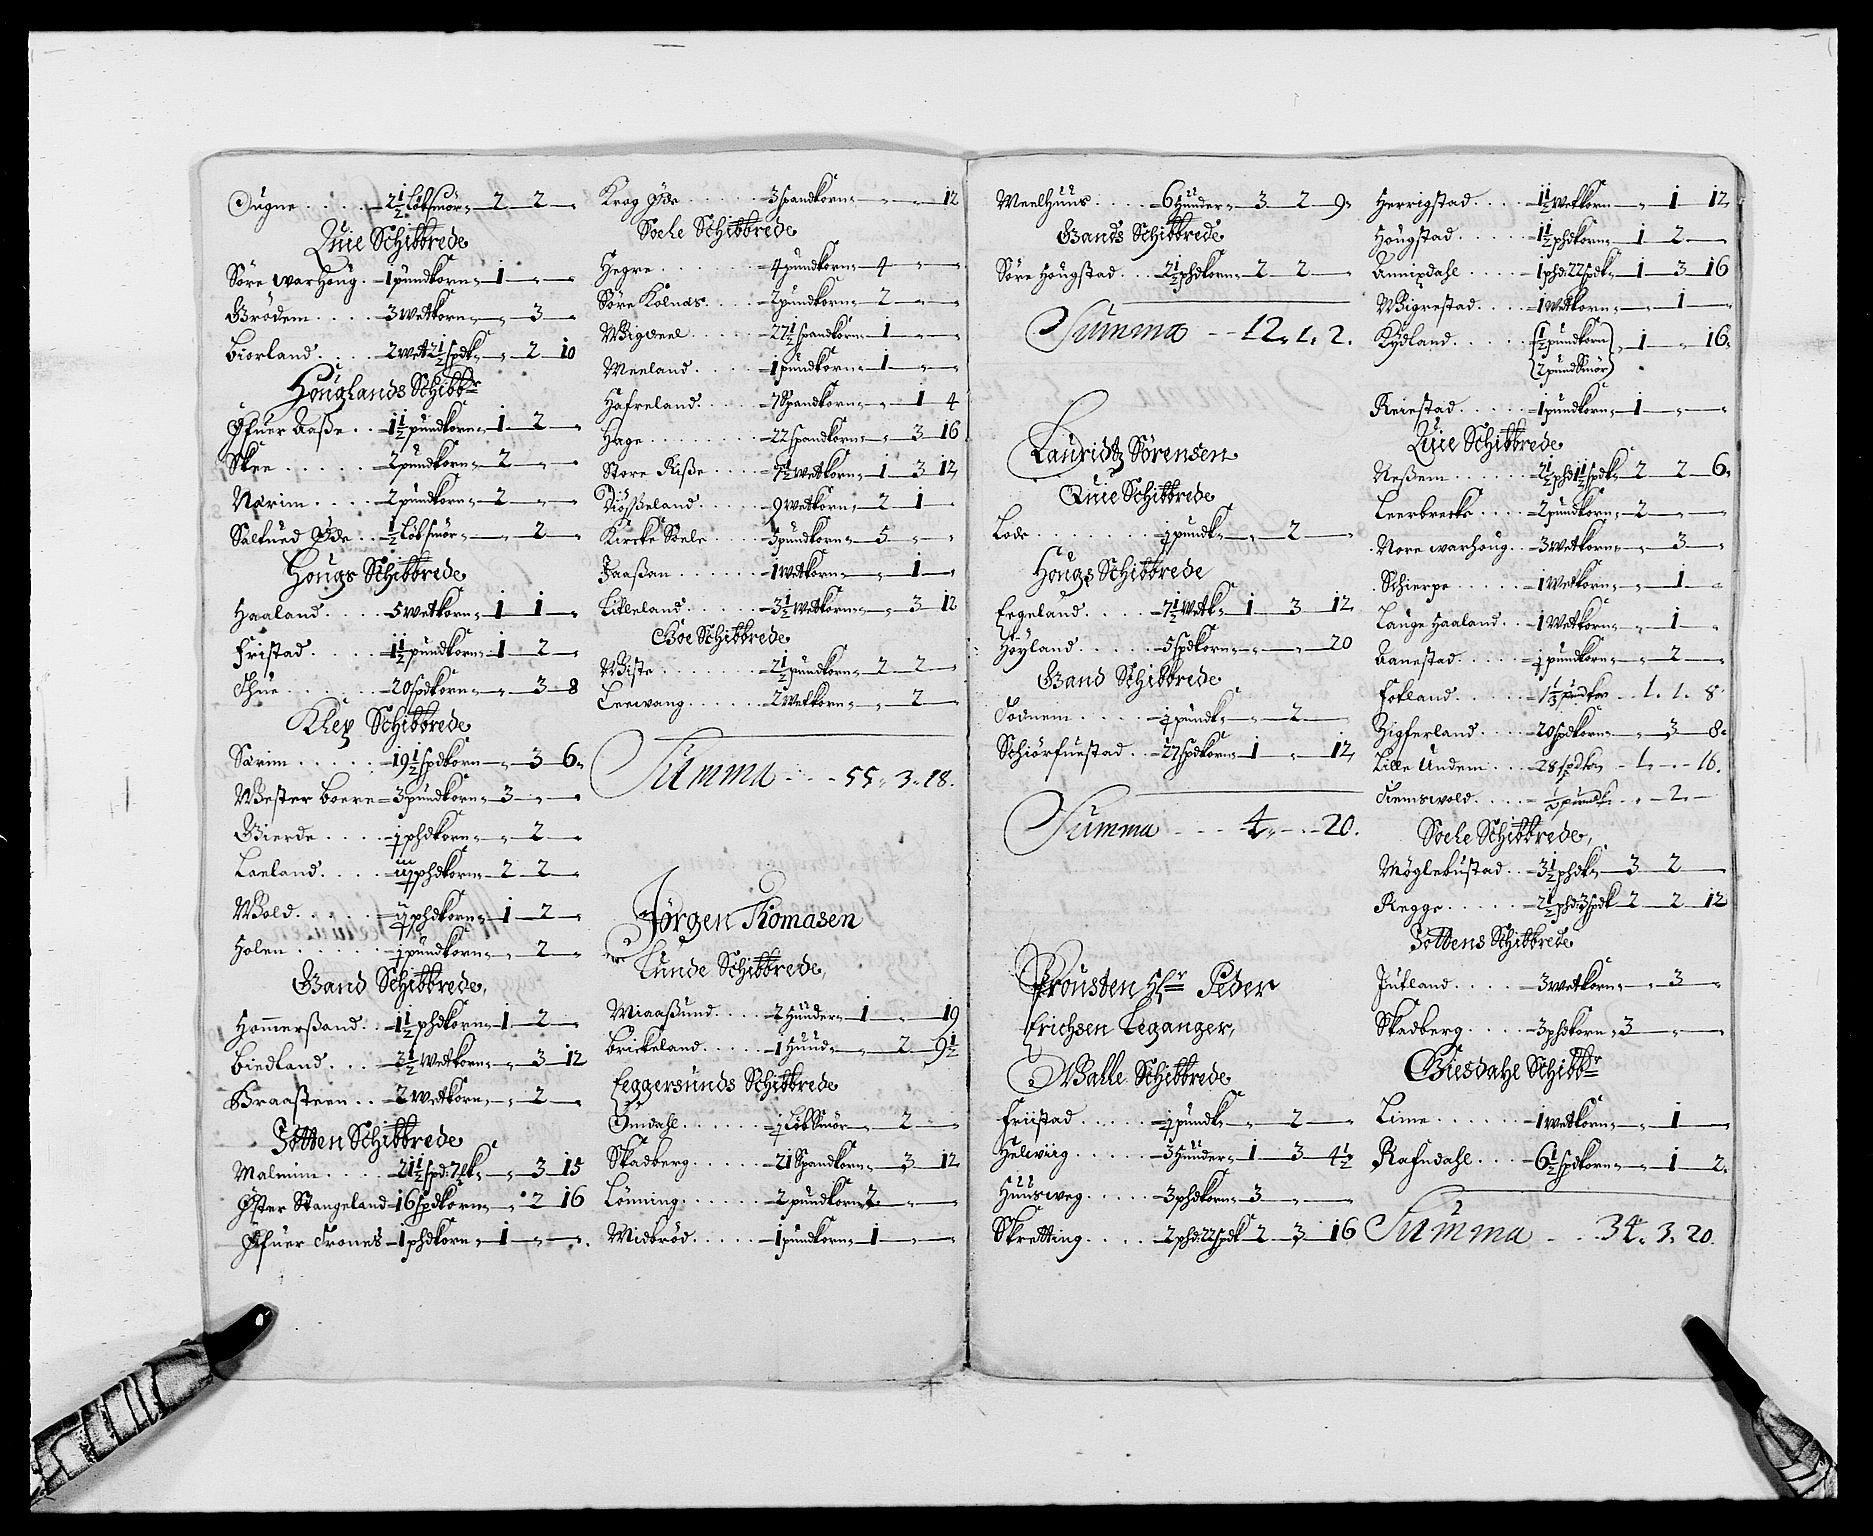 Ougne . . . . . 2½ Løb smør „ 2 – 2 – „
Quie Schibbrede
Søre warhoug . . 1 pundkorn „ 1 – „ – „
Brødem . . . . 3 wetkorn „ – „ 3 – „
Biorland . . . . 2 wet 2½ spdk „ – „ 2 – 10
Houglands Schibbr
Øfuer Aaße . . 1½ pundkorn „ 1 – 2 – „
Skee . . . . . 2 pundkorn „ 2 – „ – „
Nærim . . . . 2 pundkorn „ 2 – „ – „
Saltued Øde . . ½ Løb smør „ – „ 2 – „
Hougs Schibbrede
Haaland . . . . 5 wetkorn „ 1 – 1 – „
Fristad . . . . 1½ pundkorn „ 1 – 2 – „
Thue . . . . . 20 spdkorn „ – „ 3 – 8
Klep Schibbrede
Særim . . . . . 19½ spdkorn – „ 3 – 6 „
Wester Boere – 3 pundkorn „ 3 – „ – „
Gierde . . . . ½ phdkorn „ – „ 2 – „
Laeland . . . . phdkorn „ 2 – 2 – „
Wold . . . . . phdkorn „ 1 – 2 – „
Holen . . . . . ½ pundkorn „ – „ 2 – „
Gand Schibbrede,
Hommerßand . . 1½ phdkorn „ 1 – 2 – „
Biedland . . . 3½ wetkorn „ – „ 3 – 12
Braasteen . . 2 wetkorn „ – „ 2 – „
Jotten Schibbrede
Malmim . . . . 21½ spd: k „ – „ 3 – 15
Øster Stangeland – 16 spdkorn „ – „ 2 – 16
Øfuer Trones – 1 phdkorn „ 1 – „ – „
Krog Øde . . . . . 3 spandkorn „ – „ – „ 12
Soele Schibbrede
Hegre . . . . . . . 4 pundkorn „ 4 – „ – „
Søre Kolnes . . . . 2 pundkorn „ 2 – „ – „
Wigdeel . . . . . 27½ spandkorn „ 1 – „ – „
Meeland . . . . . 1 pundkorn „ 1 – „ – „
Hafreland . . . . 7 Spandkorn „ – „ 1 – 4
Hage . . . . . . . 22 spandkorn „ – „ 3 – 16
Store Riße . . . . 7½ wetkorn „ 1 – 3 – 12
Diøßeland . . . . 9 wetkorn „ 2 – 1 – „
Kircke Soele . . . 5 pundkorn „ 5 – „ – „
Jaaßan . . . . . . 1 wetkorn „ – „ 1 – „
Lilleland . . . . . 3½ wetkorn „ – „ 3 – 12
Goe Schibbrede
Wiste . . . . . . 2½ pundkorn „ 2 – 2 – „
Leerwang . . . . . 2 wetkorn „ – „ 2 – „
Summa . . . 55 „ 3 „ 18.
Jørgen Tomasen
Lunde Schibbrede,
Miaaßund . . . . 2 Hunder „ 1 – „ – 19
Brickeland . . . . . 1 Hund „ – „ 2 – 9½
Eggersunds Schibbrede
Omdahl . . . . . . ½ Løb Smør – „ 2 – „
Skadberg . . . . . 21 Spandkorn „ – 3 – 12
Lønning . . . . . 2 pundkorn 2 – „ – „
Midbrød . . . . . 1 pundkorn „ 1 – „ – „
Meelhuus . . . . 6 Hunder „ 3 – 2 – 9 „
Gands Schibbrede
Søre Hougstad . . 2½ phdkorn „ 2 – 2 – „
Summa – – 12 „ 1 „ 2.
Lauridtz Sørensen
Quie Schibbrede
Lode . . . . . . . ½ pundk „ – „ 2 – „
Hougs Schibbrede
Eegeland . . . . . 7½ wetk „ 1 – 3 – 12
Høyland . . . . . 5 spdkorn „ – „ – „ 20
Gand Schibbrede
Todnem . . . . . ½ pundk „ – „ 2 – „
Schiørfuestad . . 27 spdkorn „ 1 – „ – 12
Summa – – – 4 „ – 20.
Prousten Hr Peder
Erichsen Leganger,
Walle Schibbrede
Friistad . . . . . ½ pundk „ – „ 2 – „
Helwiig . . . . . 3 Hunder „ 1 – 3 – 4½
Huusweg . . . . . 3 phdkorn „ 3 – „ – „
Skretting . . . . 2 phd: 22 spdk 2 – 3 – 16
Herrigstad . . . . 1½ wetkorn – „ 1 – 12
Hougstad . . . . . 1½ phdkorn „ 1 – 2 – „
Annisdahl . . . . 1 phd: 22 spdk „ 1 – 3 – 16
Wigrestad . . . . 1 wetkorn „ – „ 1 – „
Kydland . . . . . ½ pundkorn „ 1 – „ – 16
2 pund Smør
Reiestad . . . . . 1 pundkorn „ 1 – „ – „
Quie Schibbrede
Neßem . . . . . 2½ phd 1½ spdk „ 2 – 2 – 6 „
Leerbrecke . . . . 2 pundkorn „ 2 – „ – „
Nore warhoug . . 3 wetkorn „ – „ 3 – „
Schierpe . . . . . 1 wetkorn „ – „ 1 – „
Lauge Haaland . . 1 wetkorn „ – „ 1 – „
Aanestad . . . . . ½ pundkorn „ – „ 2 – „
Fotland . . . . . 1⅓ pundkor . . 1. 1. 8.
Higferland . . . . 20 spdkorn „ – „ 3 – 8 „
Lille Undem . . . 28 spdkor – 1. – „ – 16.
Tiemswold . . . . ½ pundk . „ – 2. –
Soele Schibbrede,
Møglebustad . . 3½ phdk „ – 3 – 2 – „
Regge . . . . . . 2½ phd: 3 spdk 2 – 2 – 12
Jottens Schibbrede
Jusland . . . . . 3 wetkorn „ – „ 3 – „
Skadberg . . . . . 3 phdkorn „ 3 – „ – „
Giesdahl Schibbr
Lime . . . . . . 1 wetkorn „ – „ 1 – „
Rafndahl . . . . 6½ spdkorn „ – „ 1 – 2 „
Summa . . . 34 „ 3 „ 20.